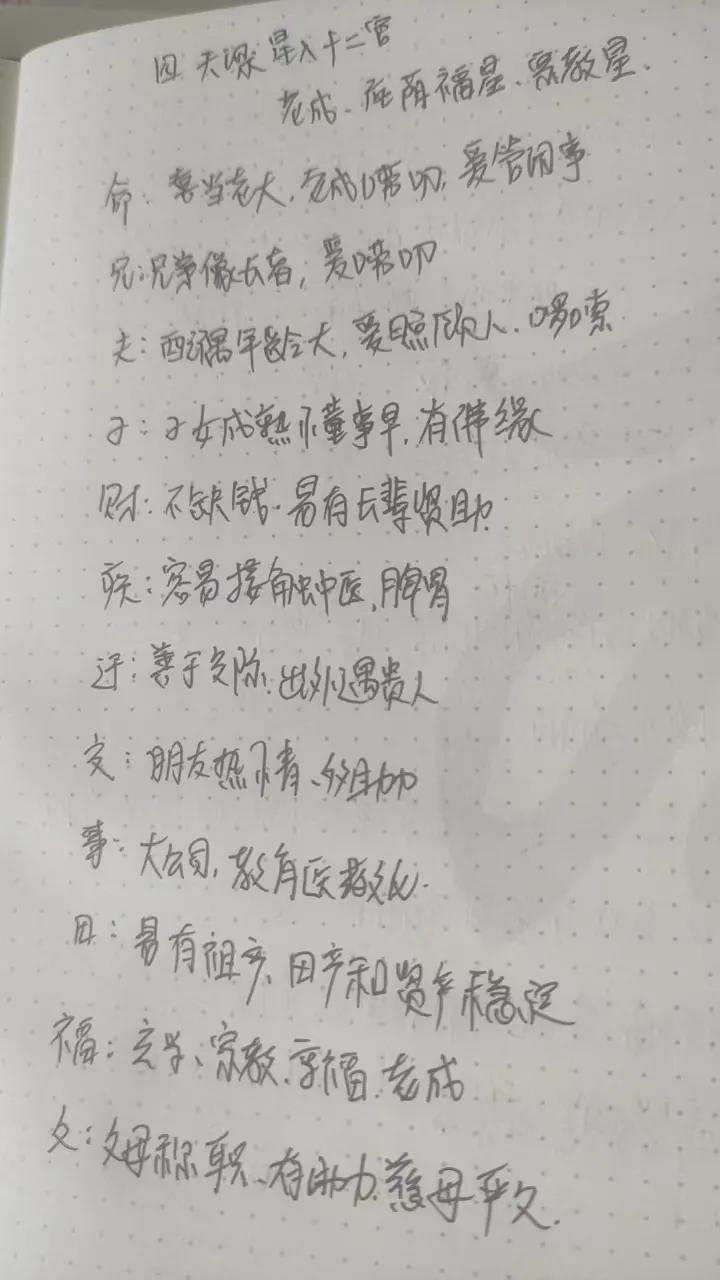 四 天梁星入十二宫
老成、庇荫福星、宗教星.
命: 喜当老大, 老成唠叨, 爱管闲事
兄: 兄弟像长者, 爱唠叨
夫: 配偶年龄大, 爱照顾人. 啰嗦
子: 子女成熟懂事早, 有佛缘
财: 不缺钱. 易有长辈资助
疾: 容易接触中医, 脾胃
迁: 善于交际. 出外遇贵人
交: 朋友热情、多助力
事: 大公司, 教育医教文化.
田: 易有祖产、田产和资产稳定
福: 玄学、宗教. 幸福. 老成
父: 父母称职、有助力. 慈母严父.